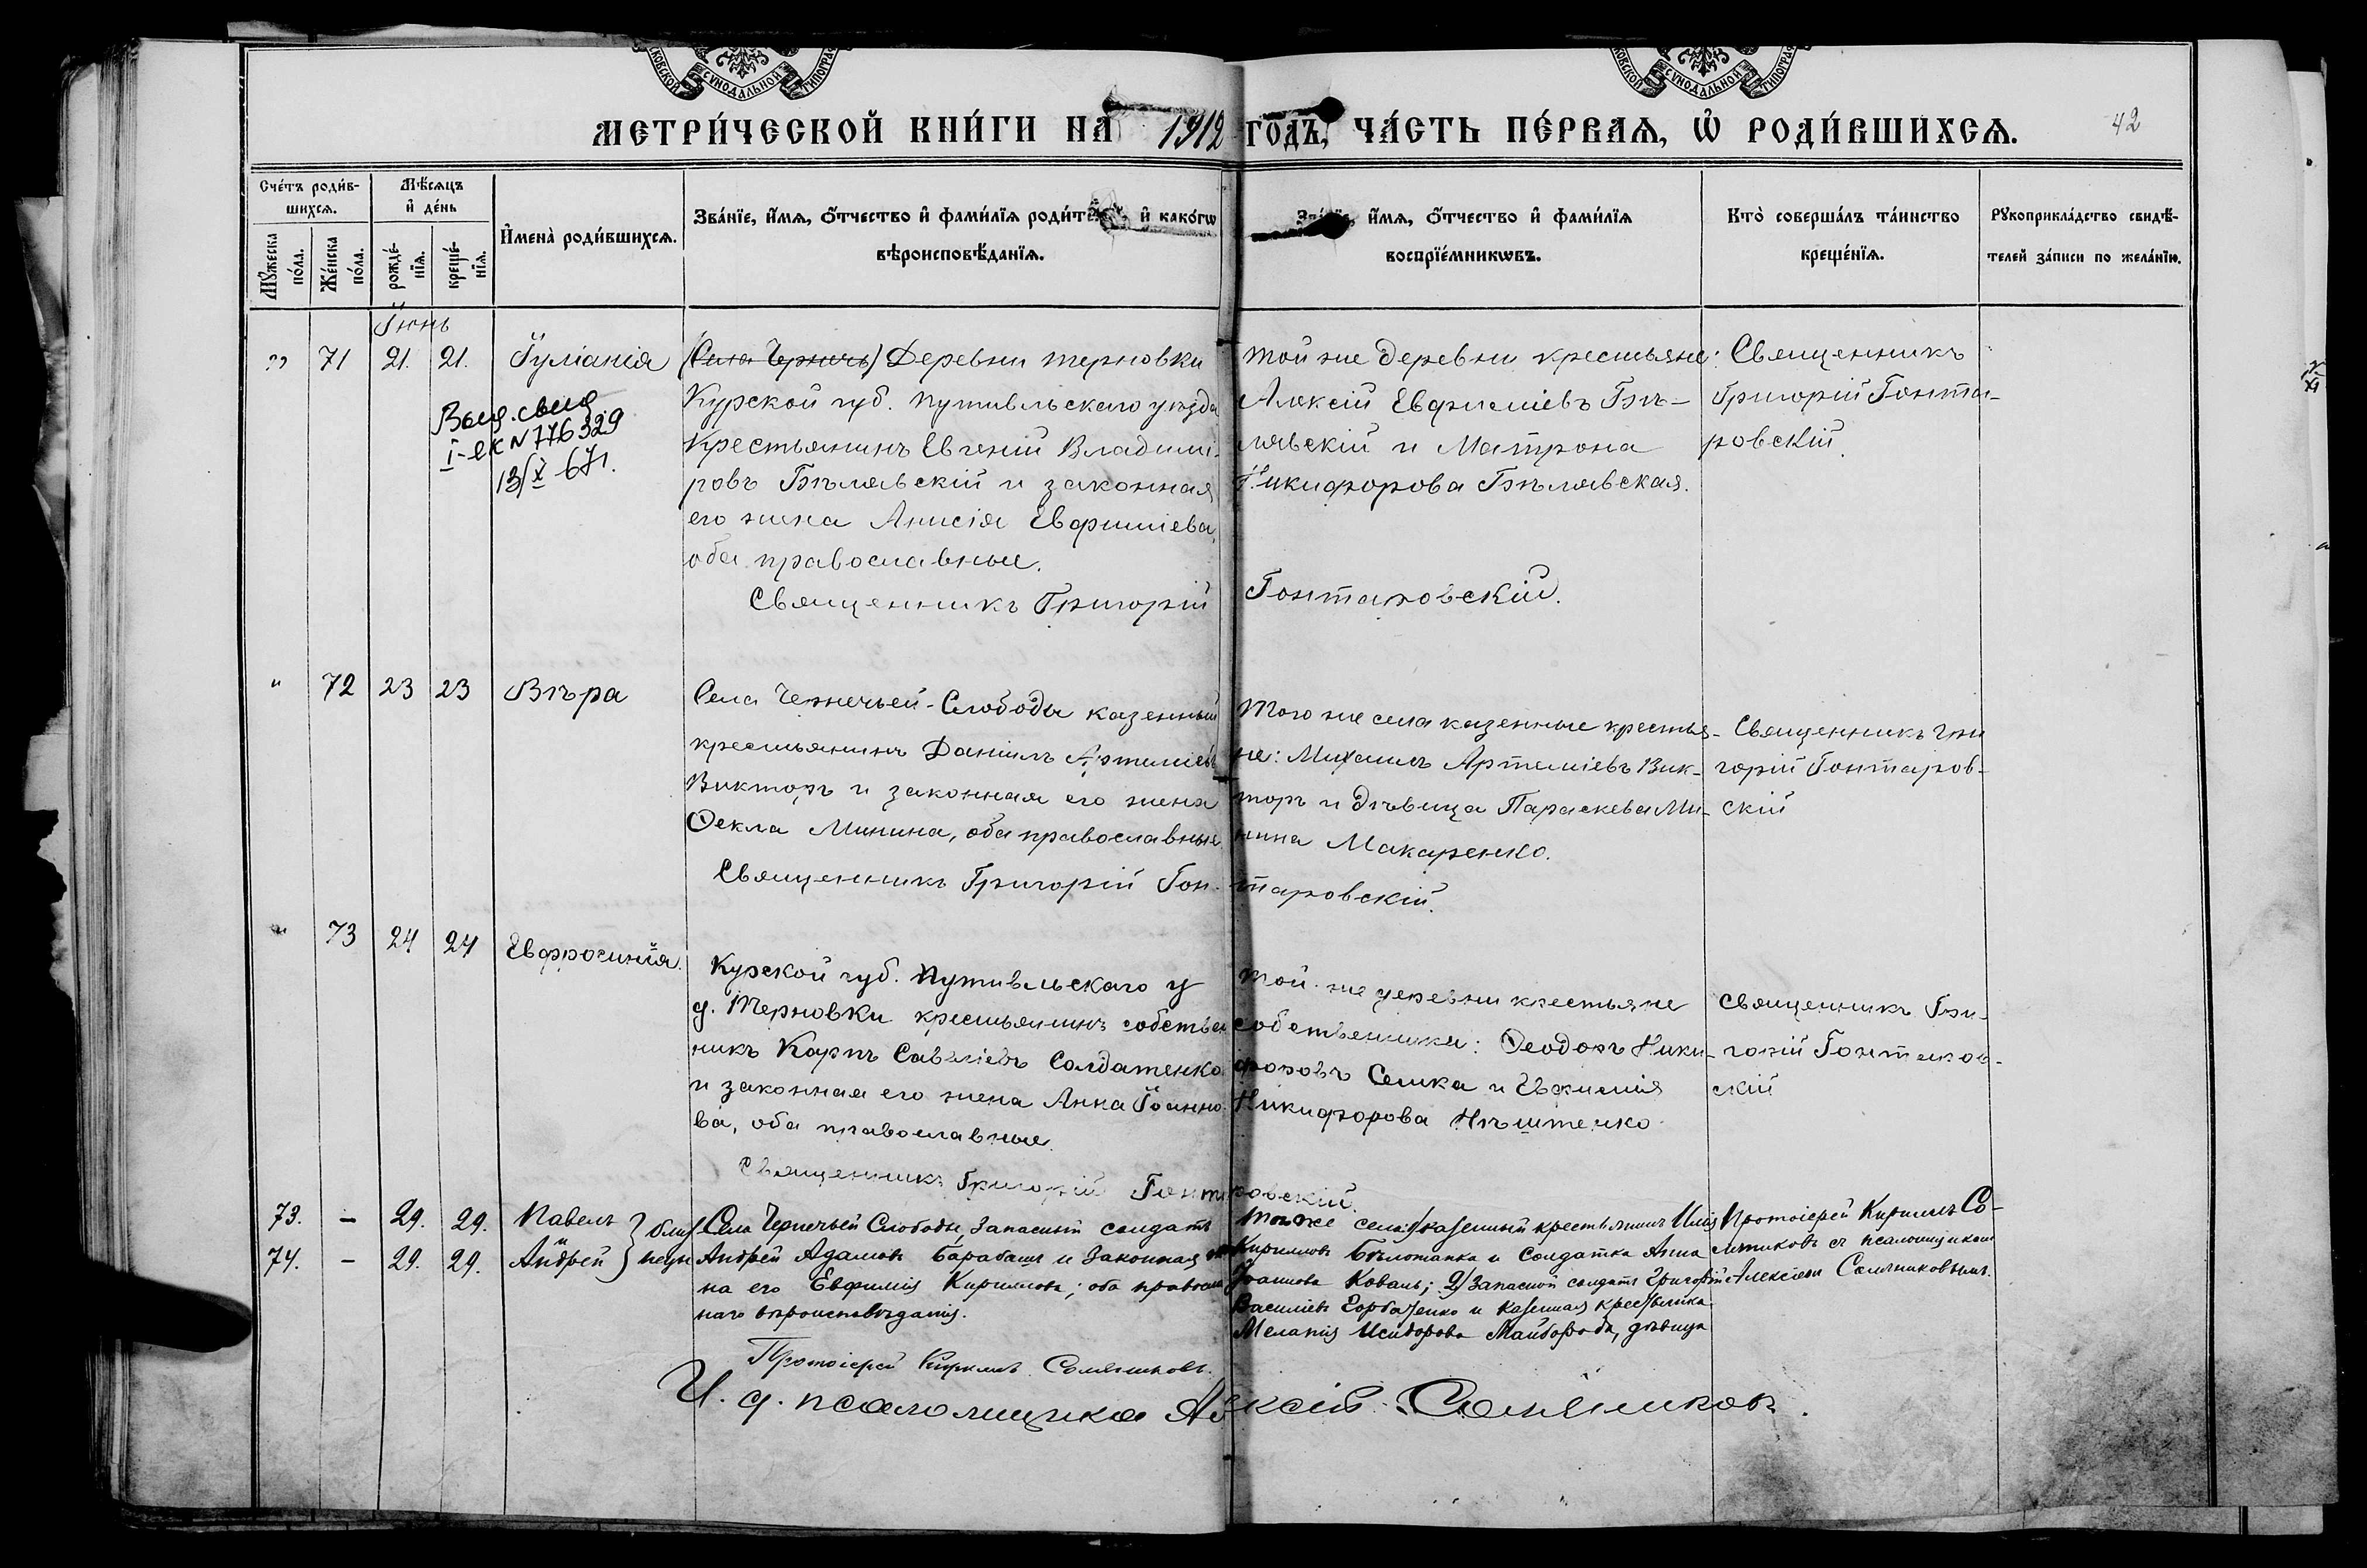 МЕТРИ́ЧЕСКОЙ КНИ́ГИ НА 1912 ГОДЪ, ЧА́СТЬ ПЕ́РВАЯ, Ѡ РОДИ́ВШИХСЯ.
42
Сче́тъ роди́в-
шихся.
Мꙋ́жеска
по́ла.
Же́нска
по́ла.
Мѣ́сяцъ
и де́нь
рожде́-
нїя.
креще́-
нїя.
И҆мена̀ роди́вшихся.
Зва́нїе, и҆́мя, ѻ҆́тчество и҆ фами́лїя роди́телей, и҆ како́гѡ
вѣроисповѣ́данїя.
Зва́нїе, и҆́мя, ѻ҆́тчество и҆ фами́лїя
воспрїе́мникѡвъ.
Кто̀ соверша́лъ та́инство
креще́нїя.
Рꙋкоприкла́дство свидѣ́-
телей за́писи по жела́нїю.
Іюнь
" 71 21. 21. Іуліанія
(Села Чернечь) Деревни Терновки
Курской губ. Путивльскаго уѣзда
Крестьянинъ Евгеній Владимі-
ровъ Бѣлявскій и законная
его жена Анисія Евфиміева,
оба православные.
Священникъ Григорій Гонтаровскій.
Той же деревни крестьяне:
Алексій Евфиміевъ Бѣ-
лявскій и Матрона
Никифорова Бѣлявская.
Священникъ
Григорій Гонта-
ровскій.
Выд. свид
I-ЕК N 776329
13/X 67г.
" 72 23 23 Вѣра
Села Чернечьей-Слободы казенный
крестьянинъ Даніилъ Артеміевъ
Викторъ и законная его жена
Ѳекла Минина, оба православные.
Священникъ Григорій Гонтаровскій.
Того же села казенные крестья-
не: Михаилъ Артеміевъ Вик-
торъ и дѣвица Параскева Ми-
нина Макаренко.
Священникъ Гри
горій Гонтаров-
скій
" 73 24 24 Евфросинія.
Курской губ. Путивльскаго у
д. Терновки крестьянинъ собствен
никъ Карпъ Савеліевъ Солдатенко
и законная его жена Анна Іоанно-
ва, оба православные.
Священникъ Григорій Гонтаровскій.
Той же деревни крестьяне
собственники: Ѳеодоръ Ники-
форовъ Семка и Евфимія
Никифорова
Священникъ Гри-
горій Гонтаров-
скій
73. — 29. 29. Павелъ
74. — 29. 29. Андрей
близ
нецы
Села Чернечьей Слободы, Запасный солдатъ
Андрей Адамовъ Барабашъ и Законная же
на его Евфимія Кириллова; оба правосла
наго вѣроисповѣданія.
Протоіерей Кириллъ Сомятиковъ.
Того же села: 1) казенный крестьянинъ Илія
Кирилловъ Бѣлошапка и солдатка Анна
Іоаннова Коваль; 2) Запасной солдатъ Григорій
Василіевъ Горбаченко и казенная крестьянка
Меланія Исидорова Майборода, дѣвица
Протоіерей Кириллъ Со-
съ псаломщикомъ
Алексіемъ
И. д. псаломщика Алексій